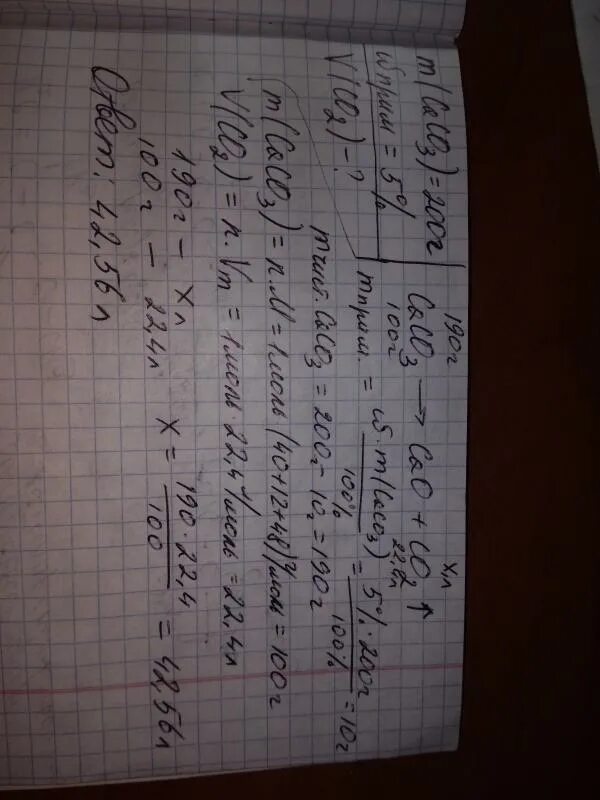 m(CaCO₃)=200г
ω прим = 5%
V(CO₂) - ?
190г      xл
CaCO₃ → CaO + CO₂↑
100г      22,4л
m прим. = ω·m(CaCO₃)/100% = 5%·200г/100% = 10г
m чист. CaCO₃ = 200г - 10г = 190г
m(CaCO₃) = n·M = 1моль·(40+12+48)г/моль = 100г
V(CO₂) = n·Vm = 1моль·22,4л/моль = 22,4л
190г - xл
100г - 22,4л    x = 190·22,4/100 = 42,56л
Ответ: 42,56л